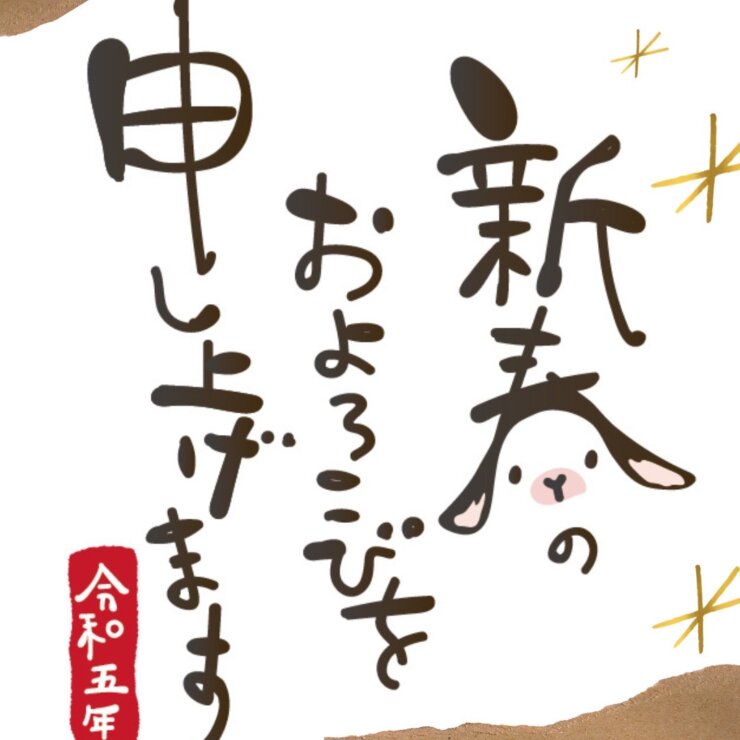 新春の
およろこびを
申し上げます
令和五年